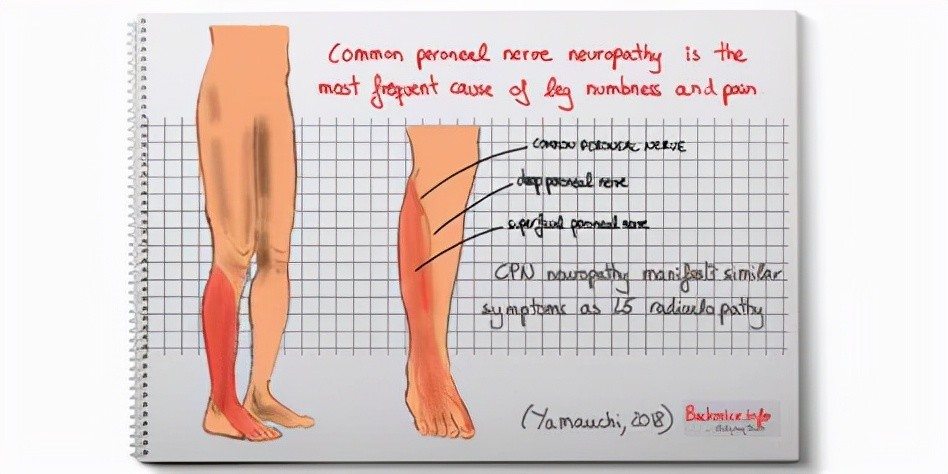 Common peroneal nerve neuropathy is the
most frequent cause of leg numbness and pain
COMMON PERONEAL NERVE
deep peroneal nerve
superficial peroneal nerve
CPN neuropathy manifest similar
symptoms as L5 radiculopathy
(Yamauchi, 2018)